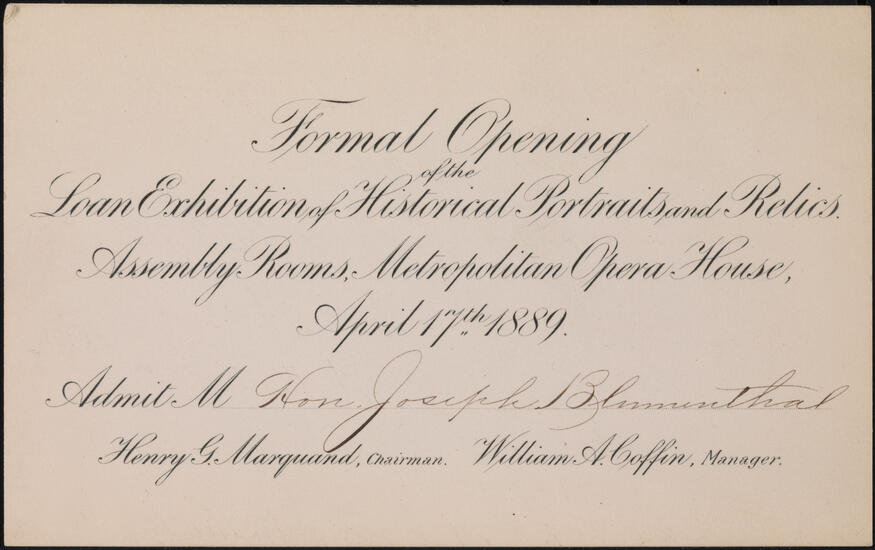 Formal Opening
of the
Loan Exhibition of Historical Portraits and Relics.
Assembly Rooms, Metropolitan Opera House,
April 17th 1889.
Admit M Hon. Joseph Blumenthal
Henry G. Marquand, Chairman. William A. Coffin, Manager.